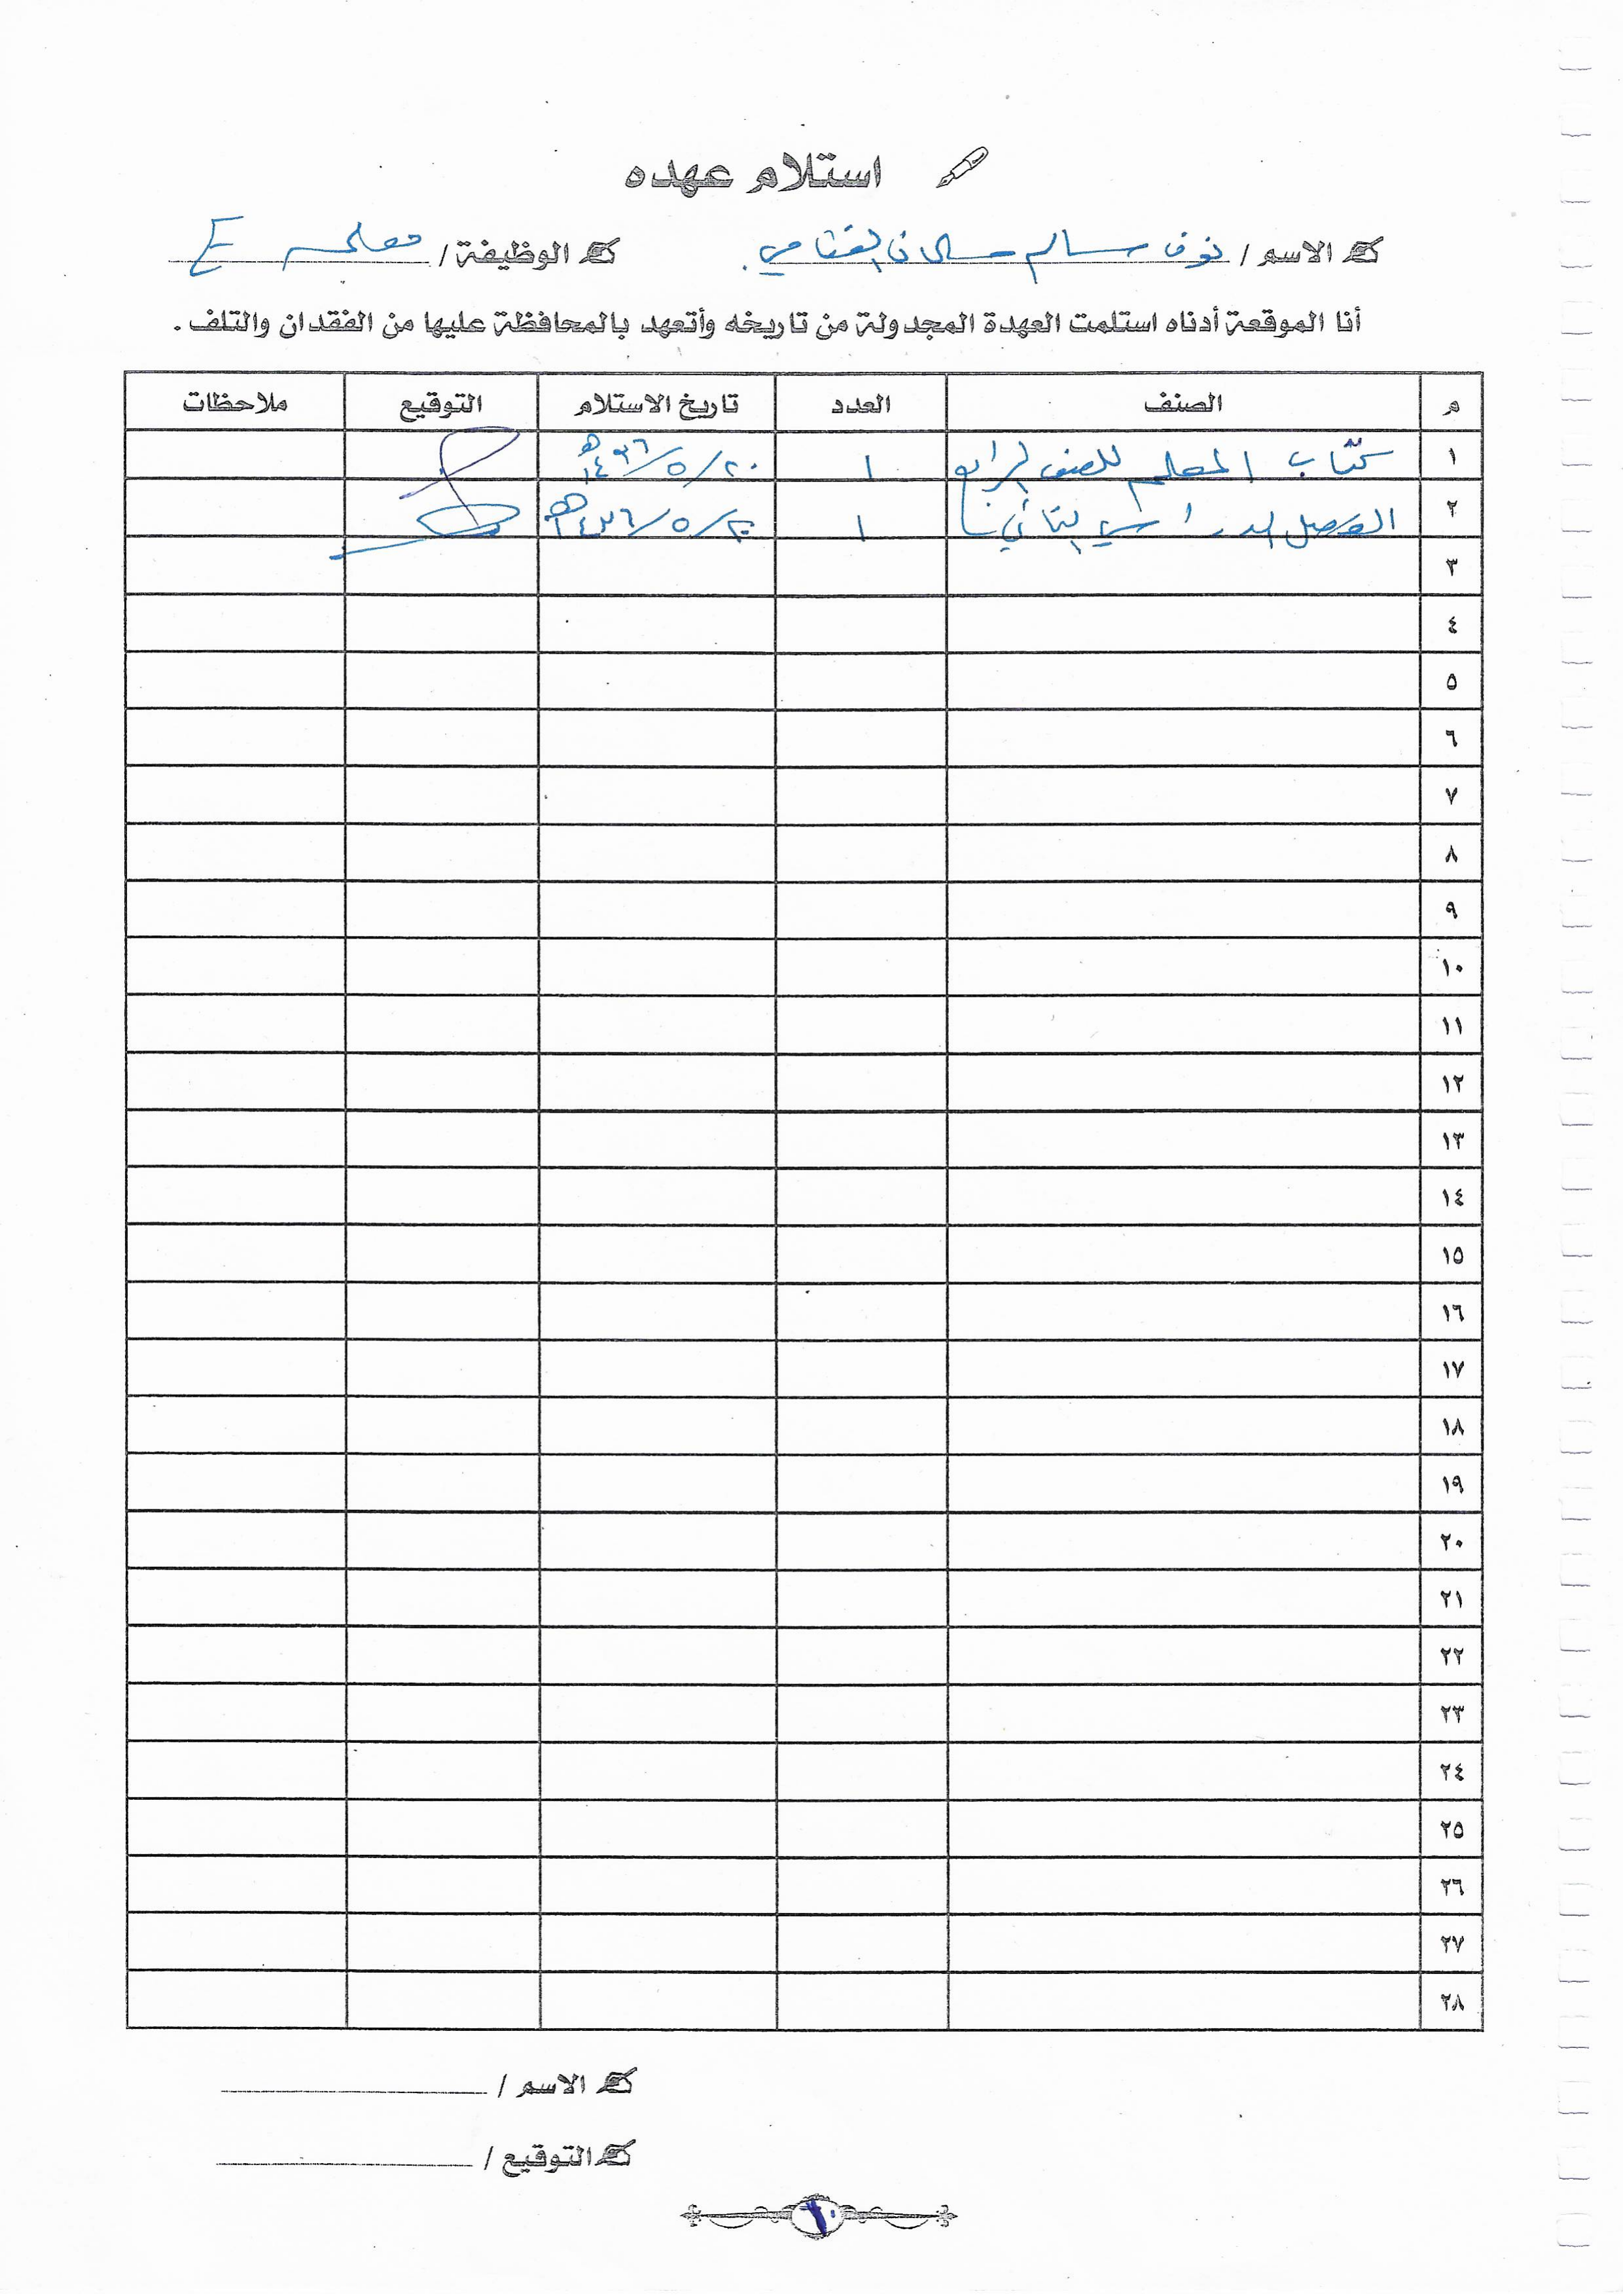 استلام عهده
الاسم / نوف سالم سالان القثامي. الوظيفة / معلمـ E
أنا الموقعة أدناه استلمت العهدة المجدولة من تاريخه وأتعهد بالمحافظة عليها من الفقدان والتلف .
م الصنف العدد تاريخ الاستلام التوقيع ملاحظات
١ كتاب المعلم للصف الرابع ١ ٢٠/٥/١٤٣٦هـ
٢ الفصل الدراسي الثاني ١ ٢٠/٥/١٤٣٦هـ
٣
٤
٥
٦
٧
٨
٩
١٠
١١
١٢
١٣
١٤
١٥
١٦
١٧
١٨
١٩
٢٠
٢١
٢٢
٢٣
٢٤
٢٥
٢٦
٢٧
٢٨
الاسم /
التوقيع /